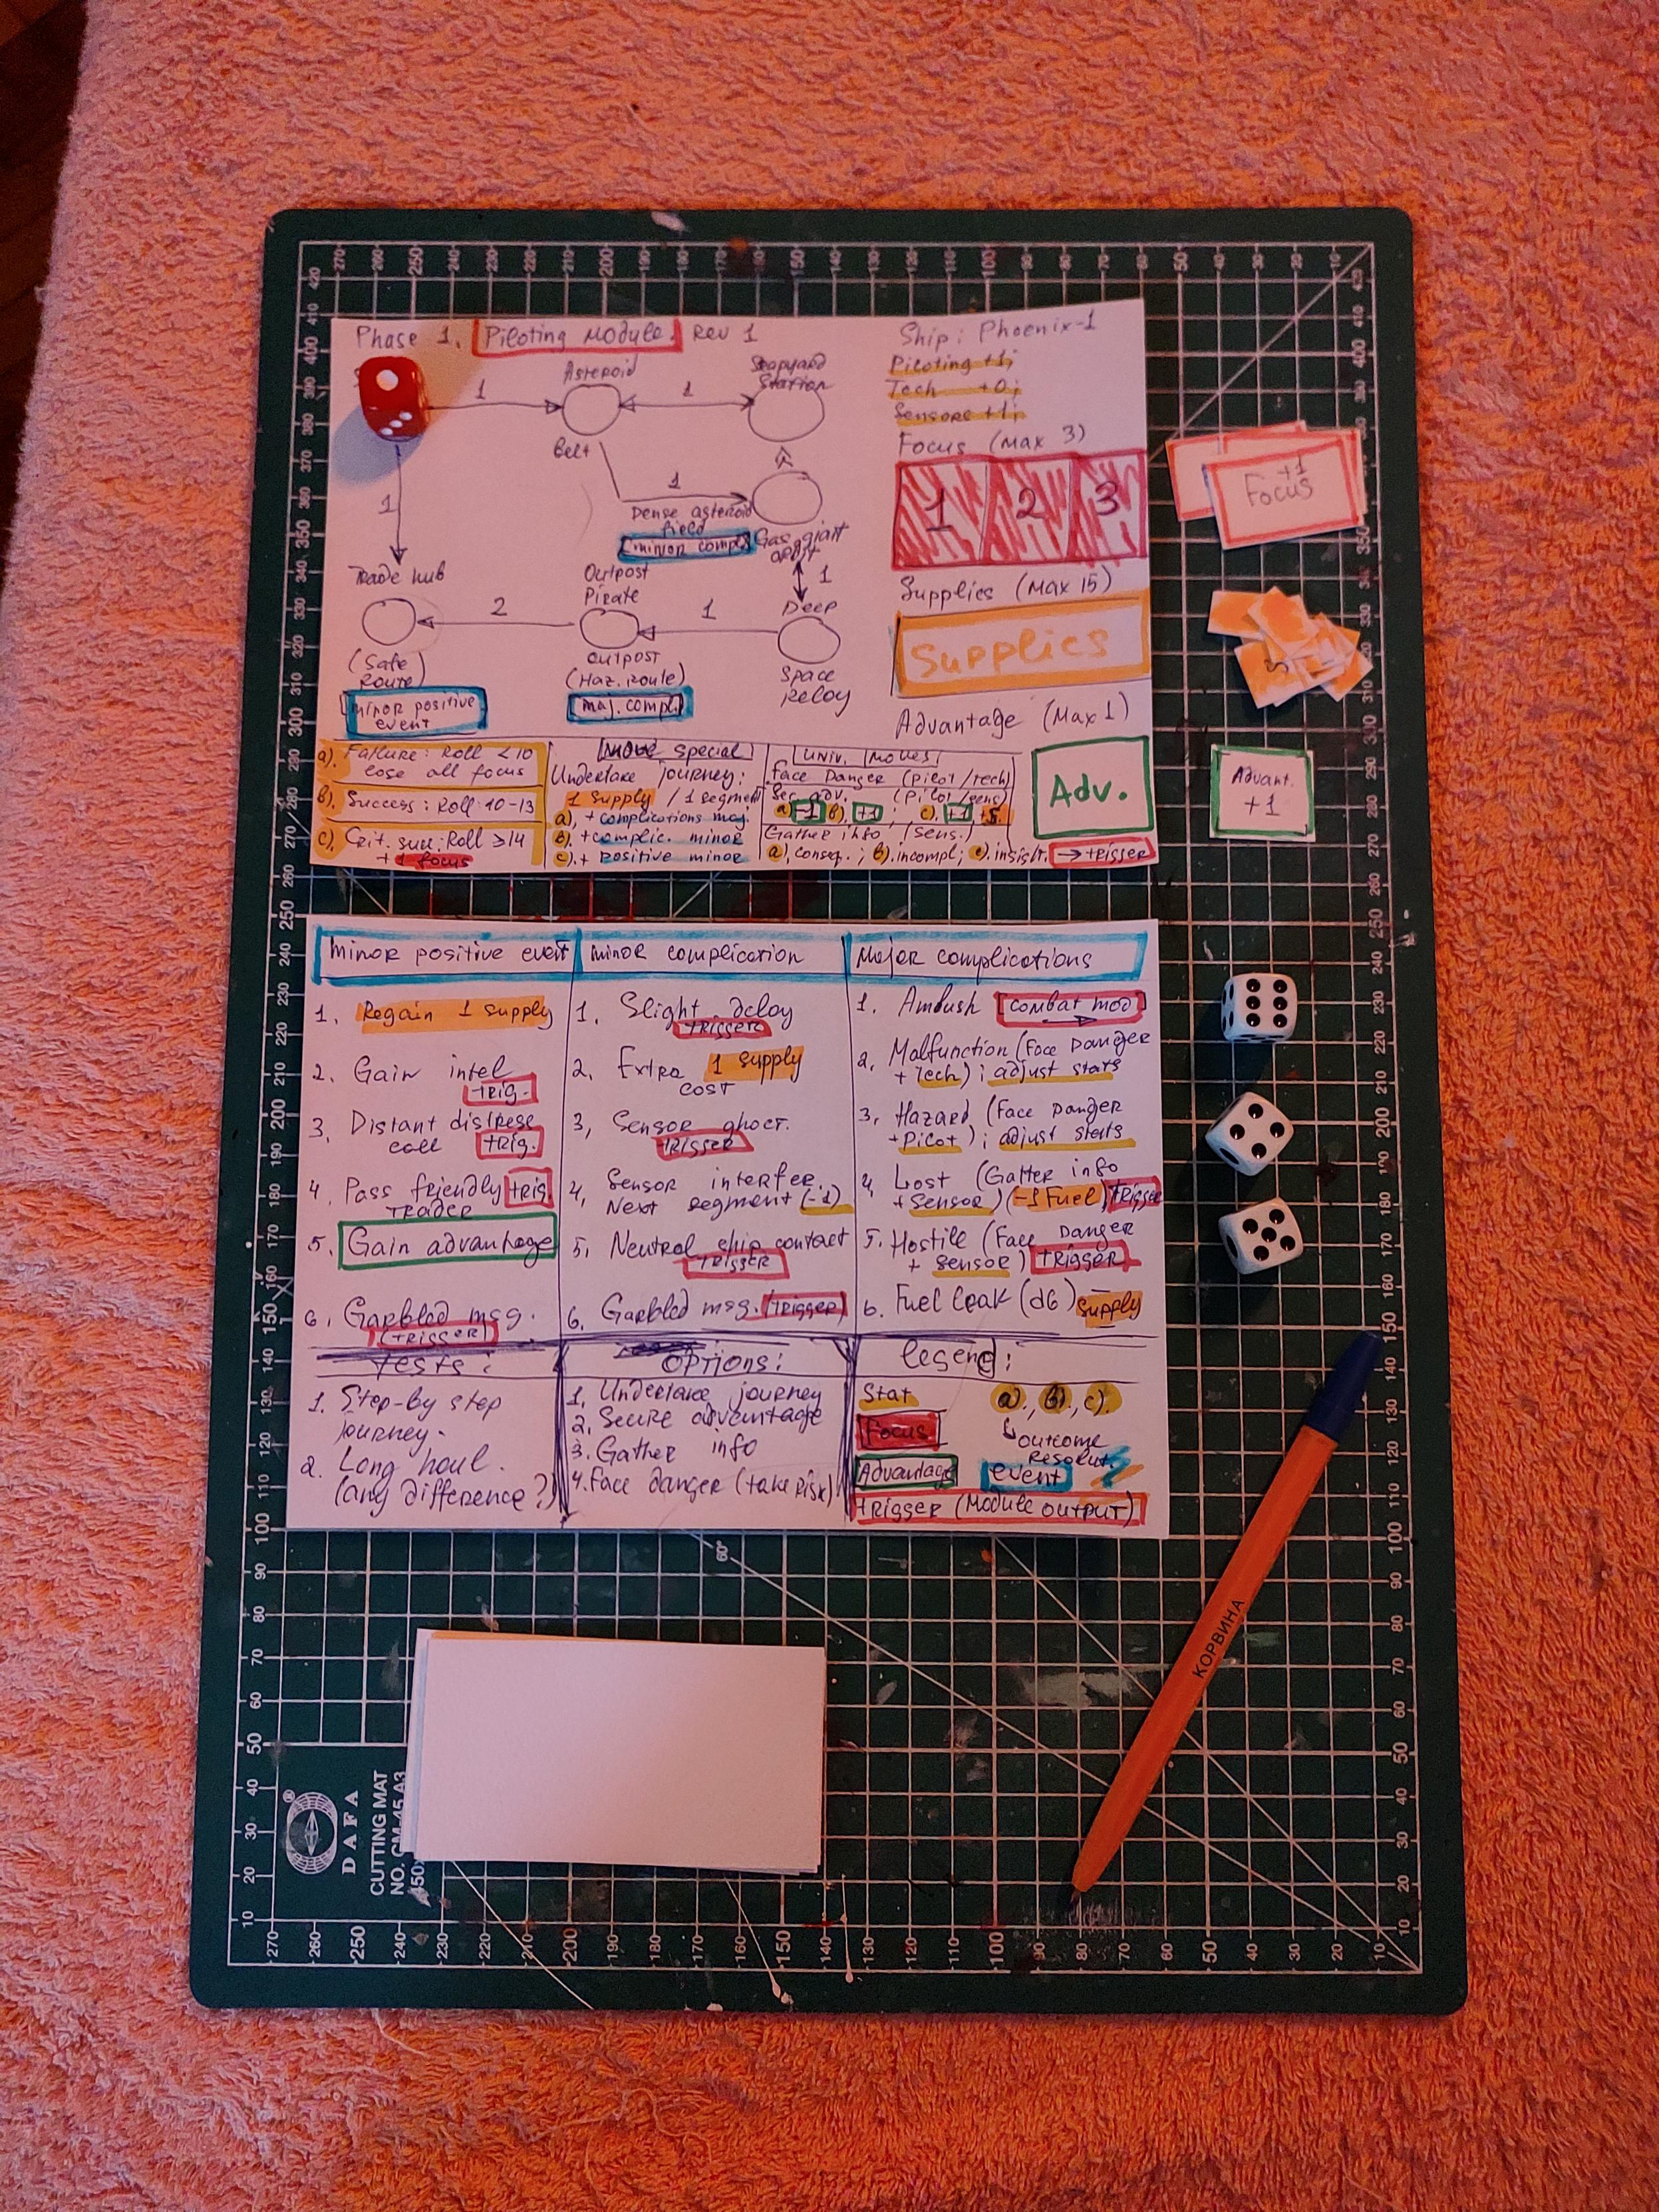 Phase 1. Piloting Module. Rev 1
Ship: Phoenix-1
Piloting +1;
Tech +0;
Sensors +1;
Focus (Max 3)
1 2 3
Supplies (Max 15)
Supplies
Advantage (Max 1)
Adv.
→ trigger
1
Asteroid
Belt
1
Station
1
1
Dense asteroid
field
minor compl
Gas giant
orbit
1
Trade hub
2
Outpost
Pirate
1
Deep
(Safe
Route)
minor positive
event
Outpost
(Haz. Route)
maj. compl.
Space
Relay
a). Failure: Roll <10
lose all focus
b). Success: Roll 10-13
c). Crit. succ: Roll ≥14
+1 focus
Move special
Undertake journey:
1 supply / 1 segment
a). + complications maj.
b). + complic. minor
c). + positive minor
Univ. Moves
Face Danger (pilot/tech)
Sec. adv. (Pilot/sens)
a) -1 b). +1; c). +1 +S.
Gather info (sens.)
a). conseq.; b). incompl; c). insight.
+1
Focus
5
Advant.
+1
Minor positive event
1. Regain 1 supply
2. Gain intel
trig.
3. Distant distrese
call trig.
4. Pass friendly trig
trader
5. Gain advantage
6. Garbled msg.
(trigger)
minor complication
1. Slight delay
trigger
2. Extra 1 supply
cost
3, Sensor ghost.
trigger
4, Sensor interfer.
Next segment (-1)
5, Neutral ship contact
trigger
6. Garbled msg. trigger
Major complications
1. Ambush combat mod
2. Malfunction (Face Danger
+ Tech); adjust stats
3, Hazard (Face Danger
+Pilot); adjust stats
4 Lost (Gather info
+Sensor) (-1 Fuel) trigger
5. Hostile (Face Danger
+ sensor) trigger
6. Fuel leak (d6) supply
Tests:
1. Step-by step
journey.
2. Long haul.
(any difference?)
Options:
1. Undertake journey
2. Secure advantage
3. Gather info
4. Face danger (take risk)
legend:
Stat
a)., b)., c).
Focus
outcome
Resolut.
Advantage
event
trigger (Module output)
КОРВИНА
DAFA
®
CUTTING MAT
NO. CM-45 A3
60°